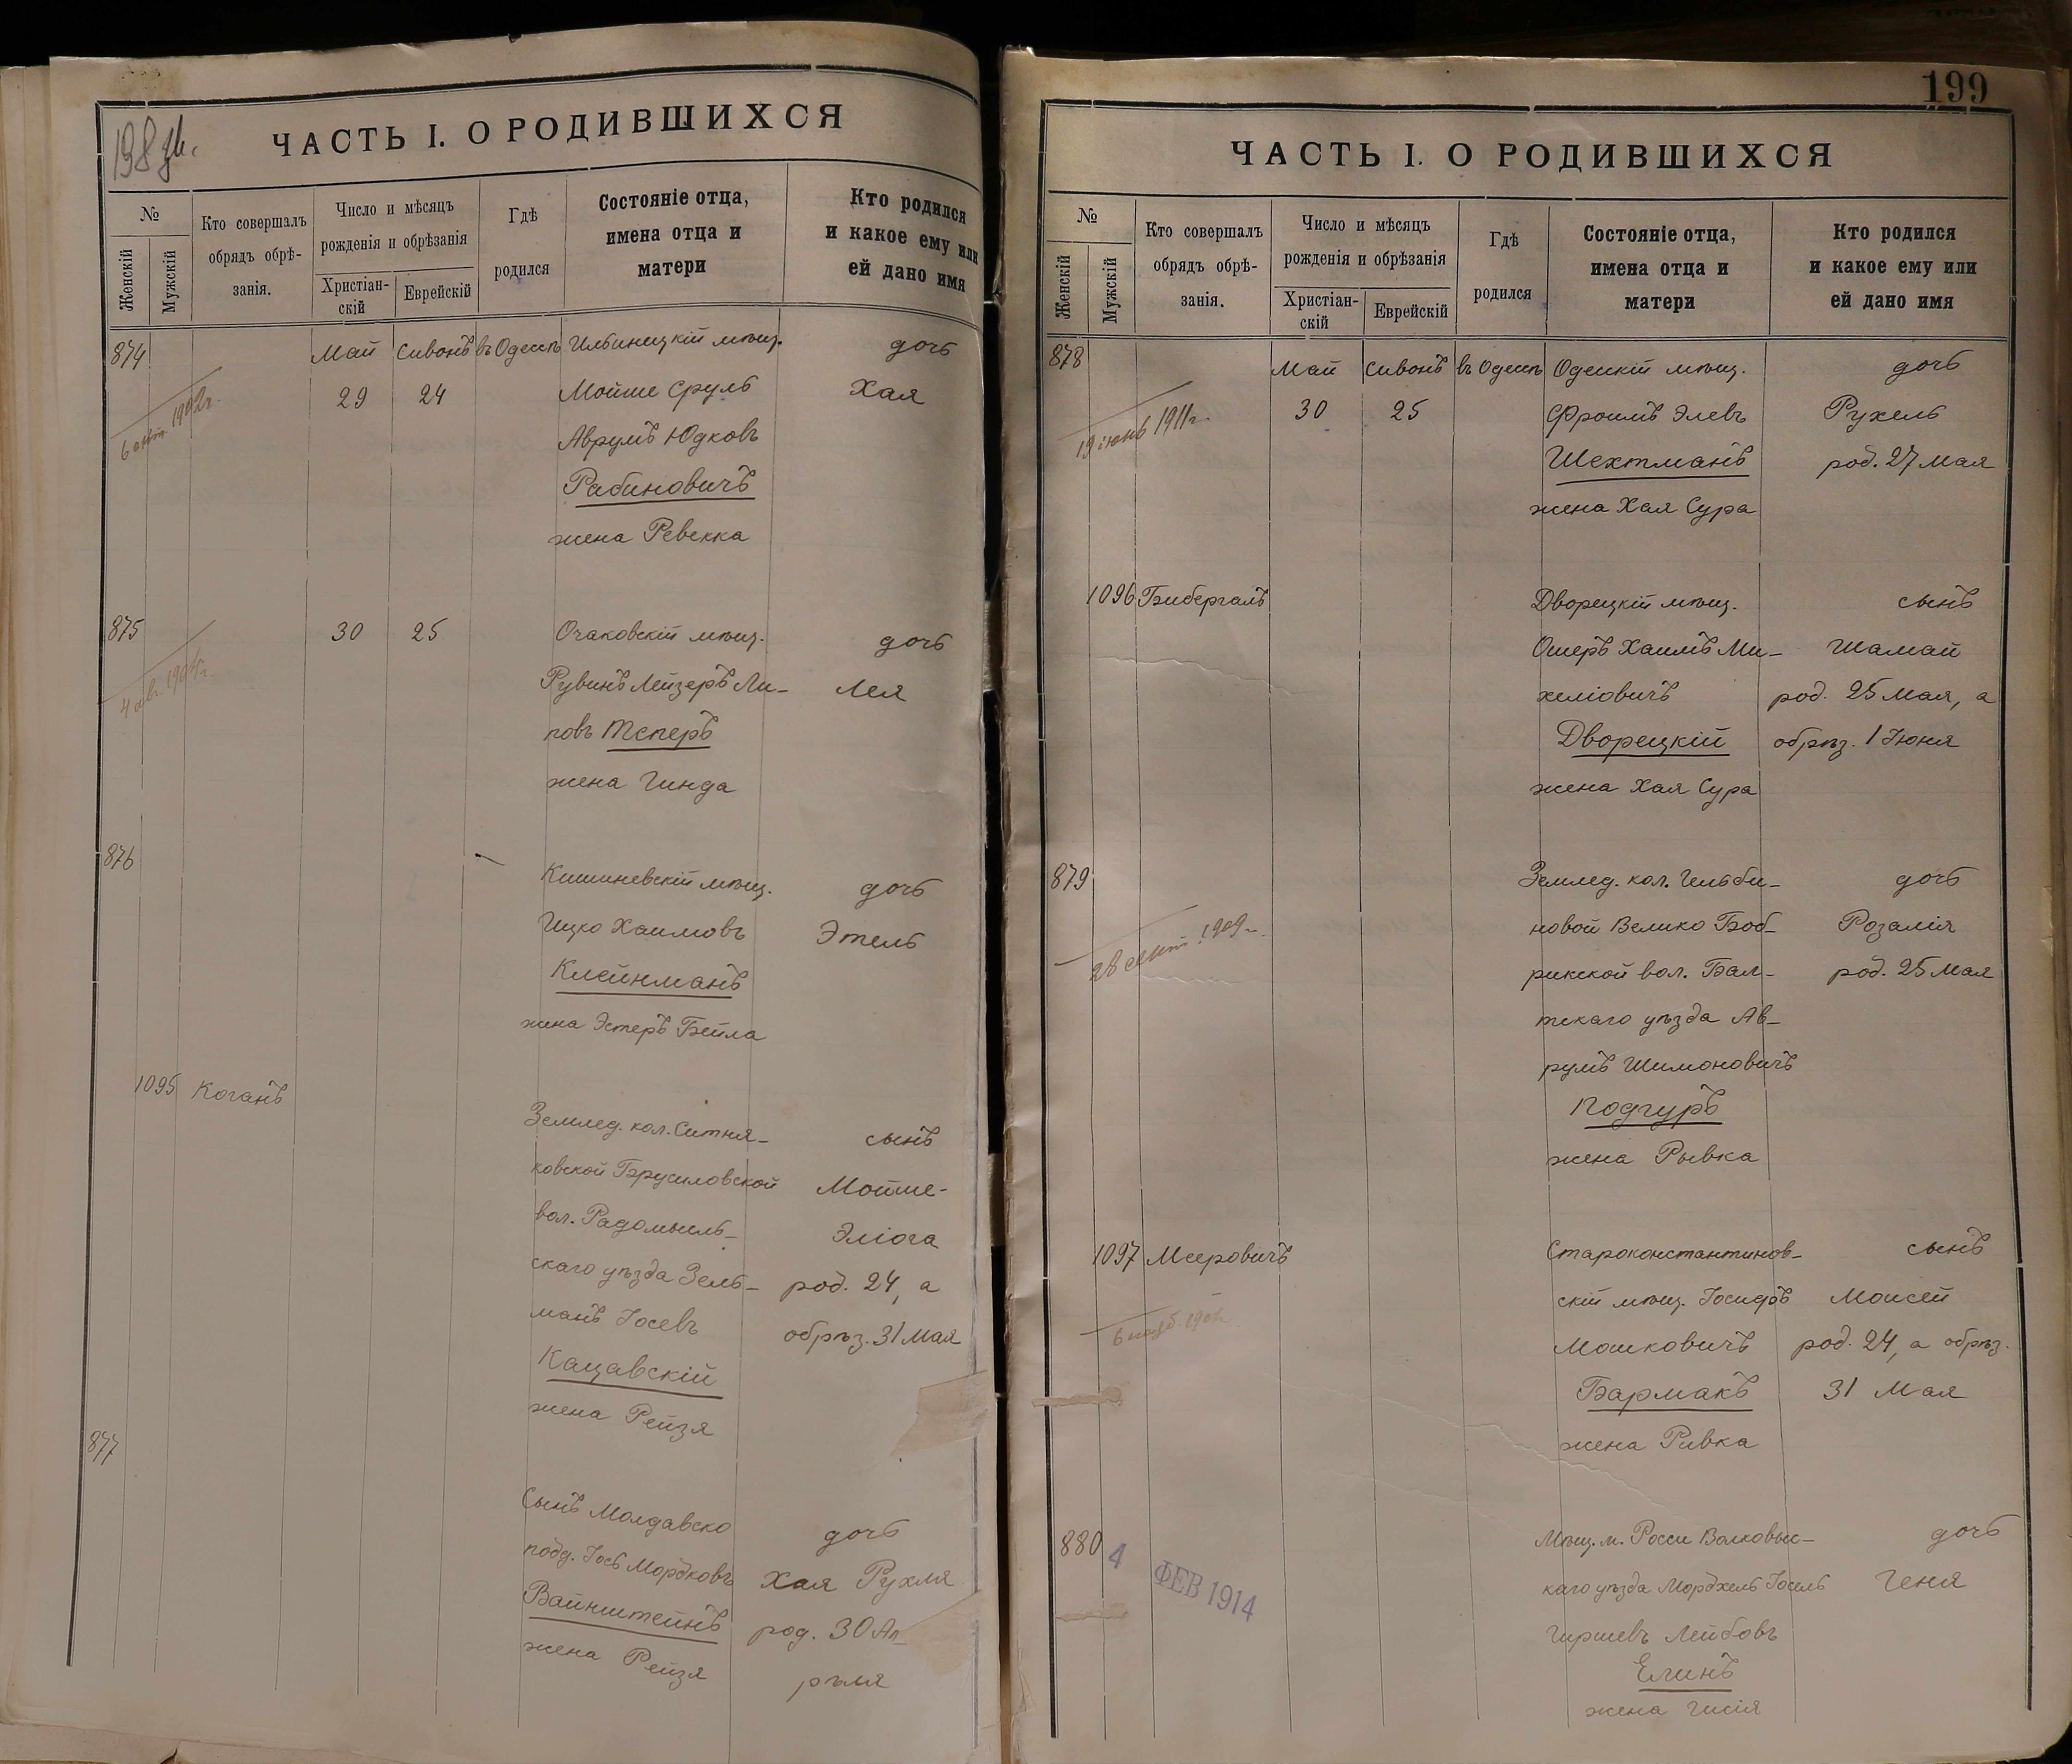 198 об.
ЧАСТЬ I. О РОДИВШИХСЯ
№
Женскій
Мужскій
Кто совершалъ
обрядъ обрѣ-
занія.
Число и мѣсяцъ
рожденія и обрѣзанія
Христіан-
скій
Еврейскій
Гдѣ
родился
Состояніе отца,
имена отца и
матери
Кто родился
и какое ему или
ей дано имя
874 Май Сивонъ въ Одессѣ Ильиницкій мѣщ. дочь
29 24 Мойше Сруль Хая
Аврумъ Юдковъ
Рабиновичъ
жена Ревекка
875 30 25 Очаковскій мѣщ. дочь
Рувинъ Лейзеръ Ли- Лея
повъ Теперъ
жена Гинда
876 Кишиневскій мѣщ. дочь
Ицко Хаимовъ Этель
Клейнманъ
жена Эстеръ Бейла
1095 Коганъ
Землед. кол. Ситня- сынъ
ковской Брусиловской Мойше-
вол. Радомысль- Эліога
скаго уѣзда Зель- род. 24, а
манъ Іосевъ обрѣз. 31 Мая
Кацавскій
жена Рейзя
877
Сынъ Молдавско дочь
подд. Іось Мордковъ Хая Рухля
Вайнштейнъ род. 30 Ап-
жена Рейзя рѣля
199
ЧАСТЬ I. О РОДИВШИХСЯ
№
Женскій
Мужскій
Кто совершалъ
обрядъ обрѣ-
занія.
Число и мѣсяцъ
рожденія и обрѣзанія
Христіан-
скій
Еврейскій
Гдѣ
родился
Состояніе отца,
имена отца и
матери
Кто родился
и какое ему или
ей дано имя
878 Май Сивонъ въ Одессѣ Одесскій мѣщ. дочь
30 25 Фроимъ Элевъ Рухель
19 іюнь 1911 г. Шехтманъ род. 27 Мая
жена Хая Сура
1096 Бибергалъ Дворецкій мѣщ. сынъ
Ошеръ Хаимъ Ми- Шамай
хеліовичъ род. 25 Мая, а
Дворецкій обрѣз. 1 Іюня
жена Хая Сура
879 Землед. кол. Гельби- дочь
новой Велико Боб- Розалія
28 сент. 1909 г. рикской вол. Бал- род. 25 Мая
тскаго уѣзда Ав-
румъ Шимоновичъ
Подгуръ
жена Рывка
1097 Мееровичъ Староконстантинов- сынъ
скій мѣщ. Іосифъ Моисей
Мошковичъ род. 24, а обрѣз.
Бармакъ 31 Мая
жена Ривка
880 Мѣщ. м. Росси Волковыс- дочь
4 ФЕВ 1914 каго уѣзда Мордхель Іосель Геня
Гиршевъ Лейбовъ
Елинъ
жена Гисія